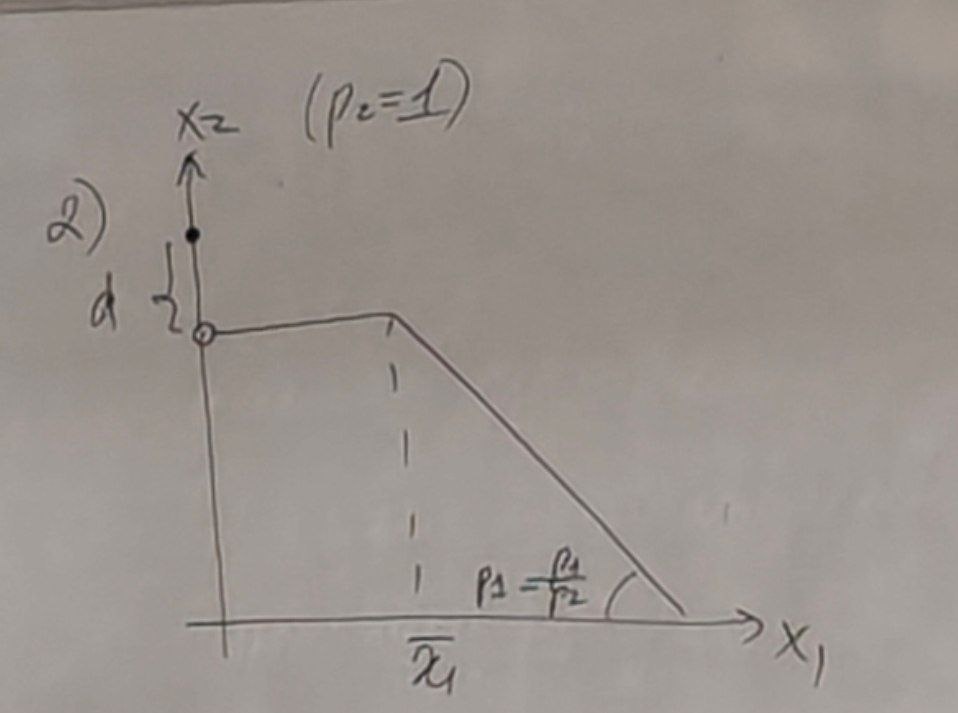 x2 (p2=1)
2)
d
p1 = p1/p2
x̄1
x1